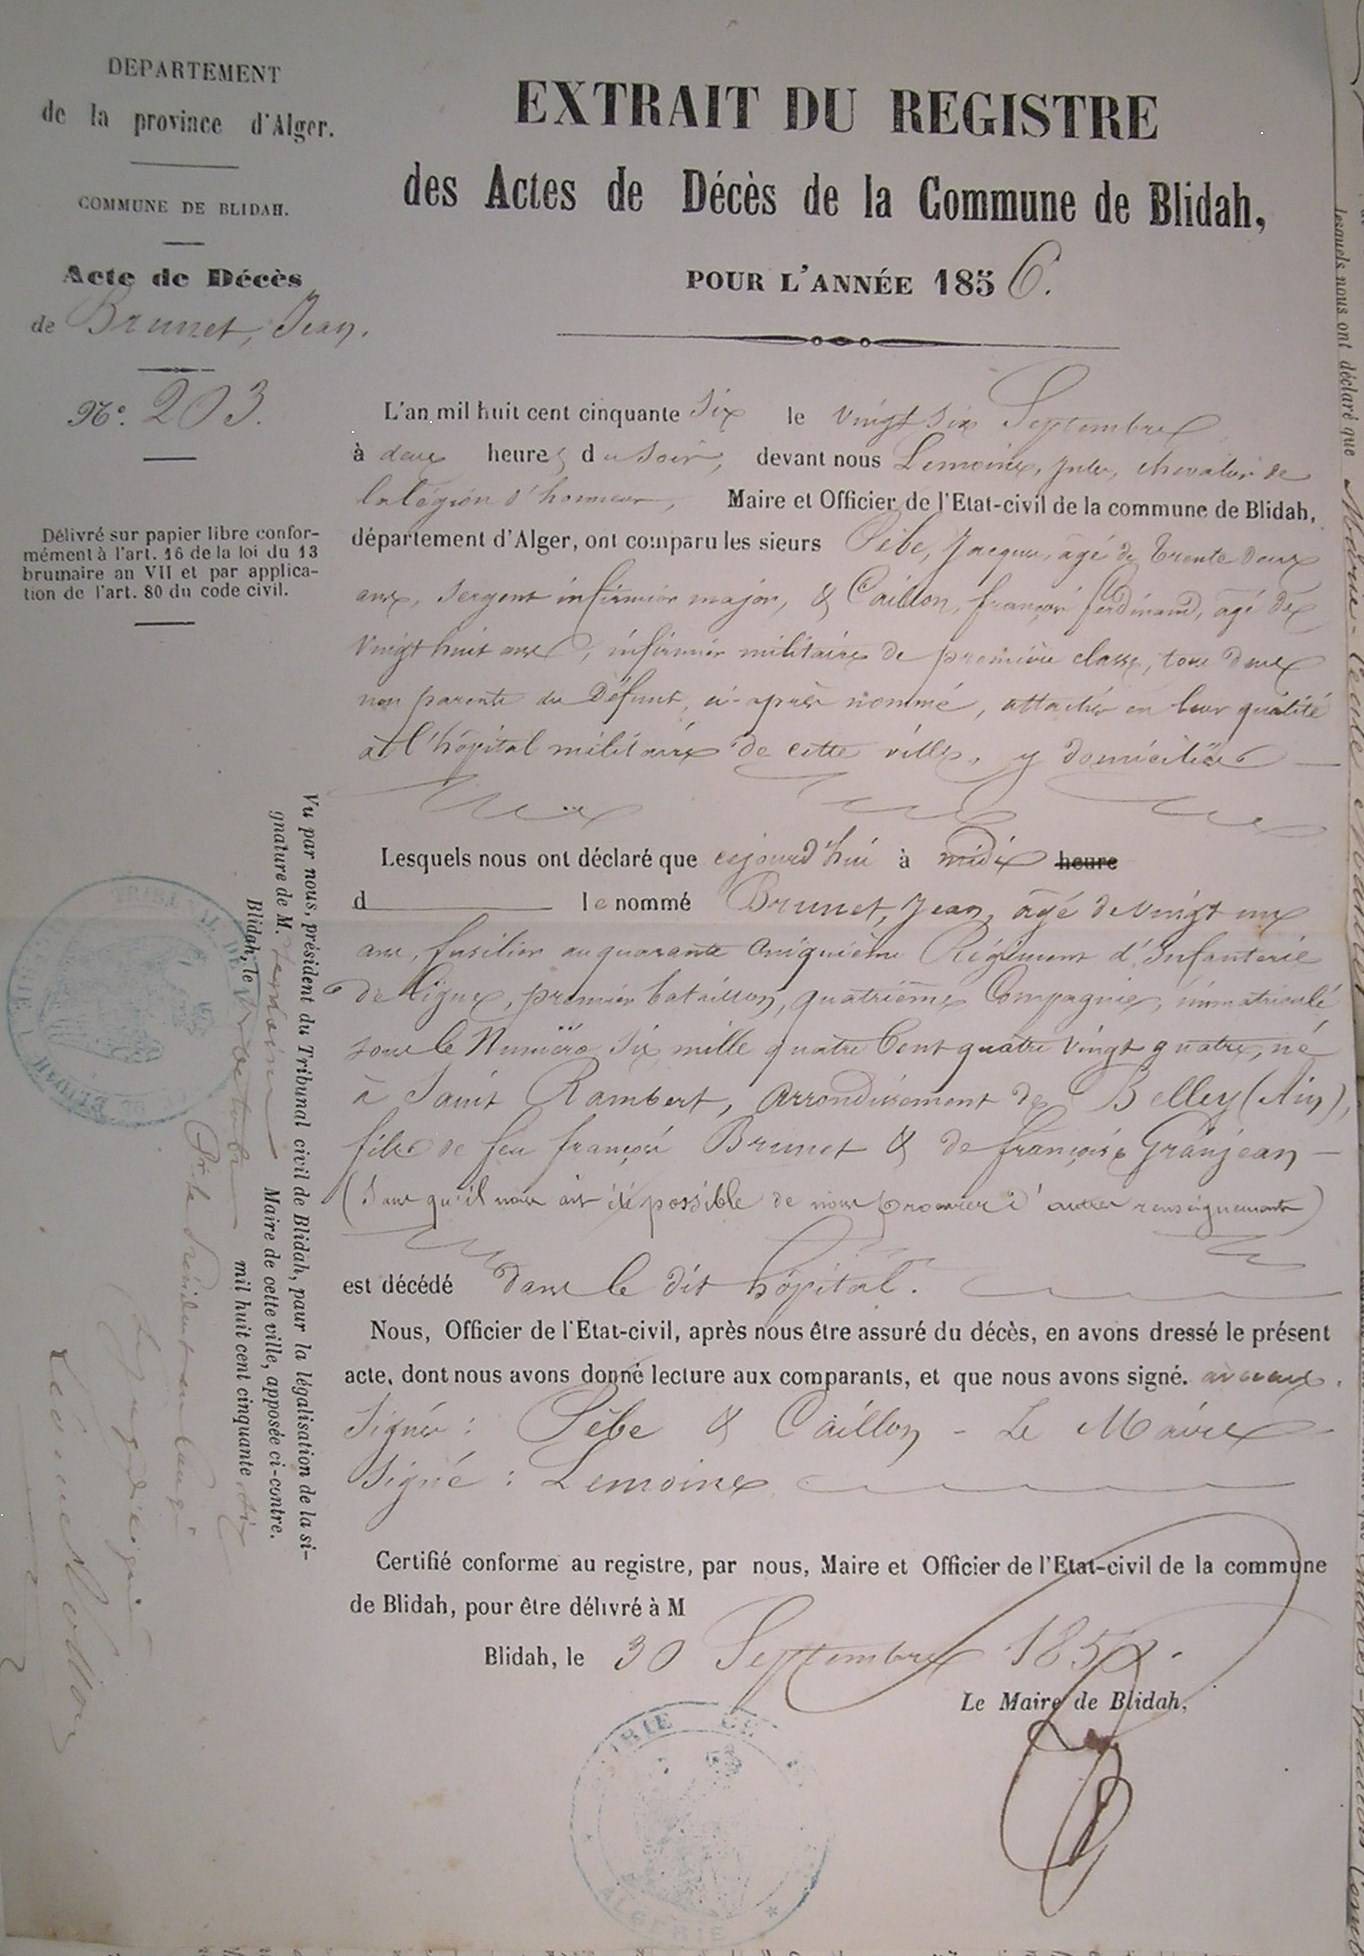 DEPARTEMENT
de la province d'Alger.
COMMUNE DE BLIDAH.
Acte de Décès
de Brunet, Jean.
N°. 203.
Délivré sur papier libre confor-
mément à l'art. 16 de la loi du 13
brumaire an VII et par applica-
tion de l'art. 80 du code civil.
EXTRAIT DU REGISTRE
des Actes de Décès de la Commune de Blidah,
POUR L'ANNÉE 1856.
L'an mil huit cent cinquante six le vingt six Septembre
à deux heures du soir, devant nous Lemoine, Jules, chevalier de
la légion d'honneur, Maire et Officier de l'Etat-civil de la commune de Blidah,
département d'Alger, ont comparu les sieurs Pèbe, Jacques, agé de trente deux
ans, sergent infirmier major, & Caillon, françois ferdinand, agé de
vingt huit ans, infirmier militaire de première classe, tous deux
non parents du défunt, ci-après nommé, attachés en leur qualité
à l'hôpital militaire de cette ville, y domiciliés
Lesquels nous ont déclaré que cejourd'hui à midi heure
d le nommé Brunet, Jean, agé de vingt un
ans, fusilier au quarante cinquième Régiment d'Infanterie
de ligne, premier bataillon, quatrième Compagnie, immatriculé
sous le Numéro six mille quatre Cent quatre vingt quatre, né
à Saint Rambert, arrondissement de Belley (Ain),
fils de feu françois Brunet & de françoise Granjean
(Sans qu'il nous ait été possible de nous procurer d'autres renseignements)
est décédé dans le dit hôpital.
Nous, Officier de l'Etat-civil, après nous être assuré du décès, en avons dressé le présent
acte, dont nous avons donné lecture aux comparants, et que nous avons signé. avec eux.
Signés : Pèbe & Caillon - Le Maire
Signé : Lemoine
Certifié conforme au registre, par nous, Maire et Officier de l'Etat-civil de la commune
de Blidah, pour être délivré à M
Blidah, le 30 Septembre 185
Le Maire de Blidah,
MAIRIE DE
ALGERIE
Vu par nous, président du Tribunal civil de Blidah, paur la légalisation de la si-
gnature de M. Lemoine Maire de cette ville, apposée ci-contre.
Blidah, le octobre mil huit cent cinquante six
Pr le Président
TRIBUNAL DE
BLIDAH
lesquels nous ont déclaré que